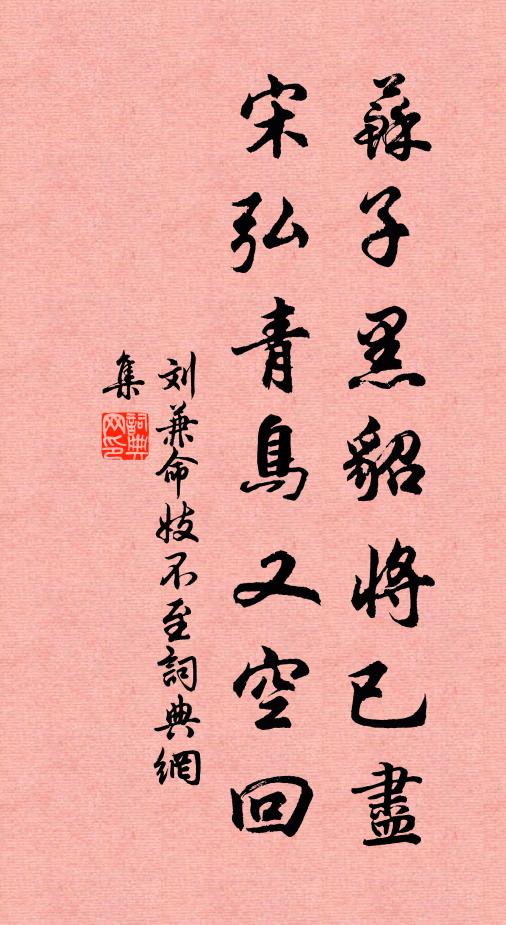 蘇子黑貂將已盡
宋弘青鳥又空回
刘兼命妓不至詞典網
集
詞典網印